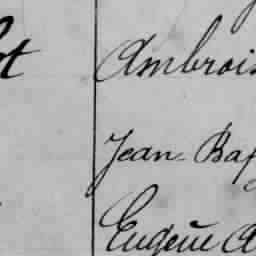 Ambrois
Jean Bap
Eugène A